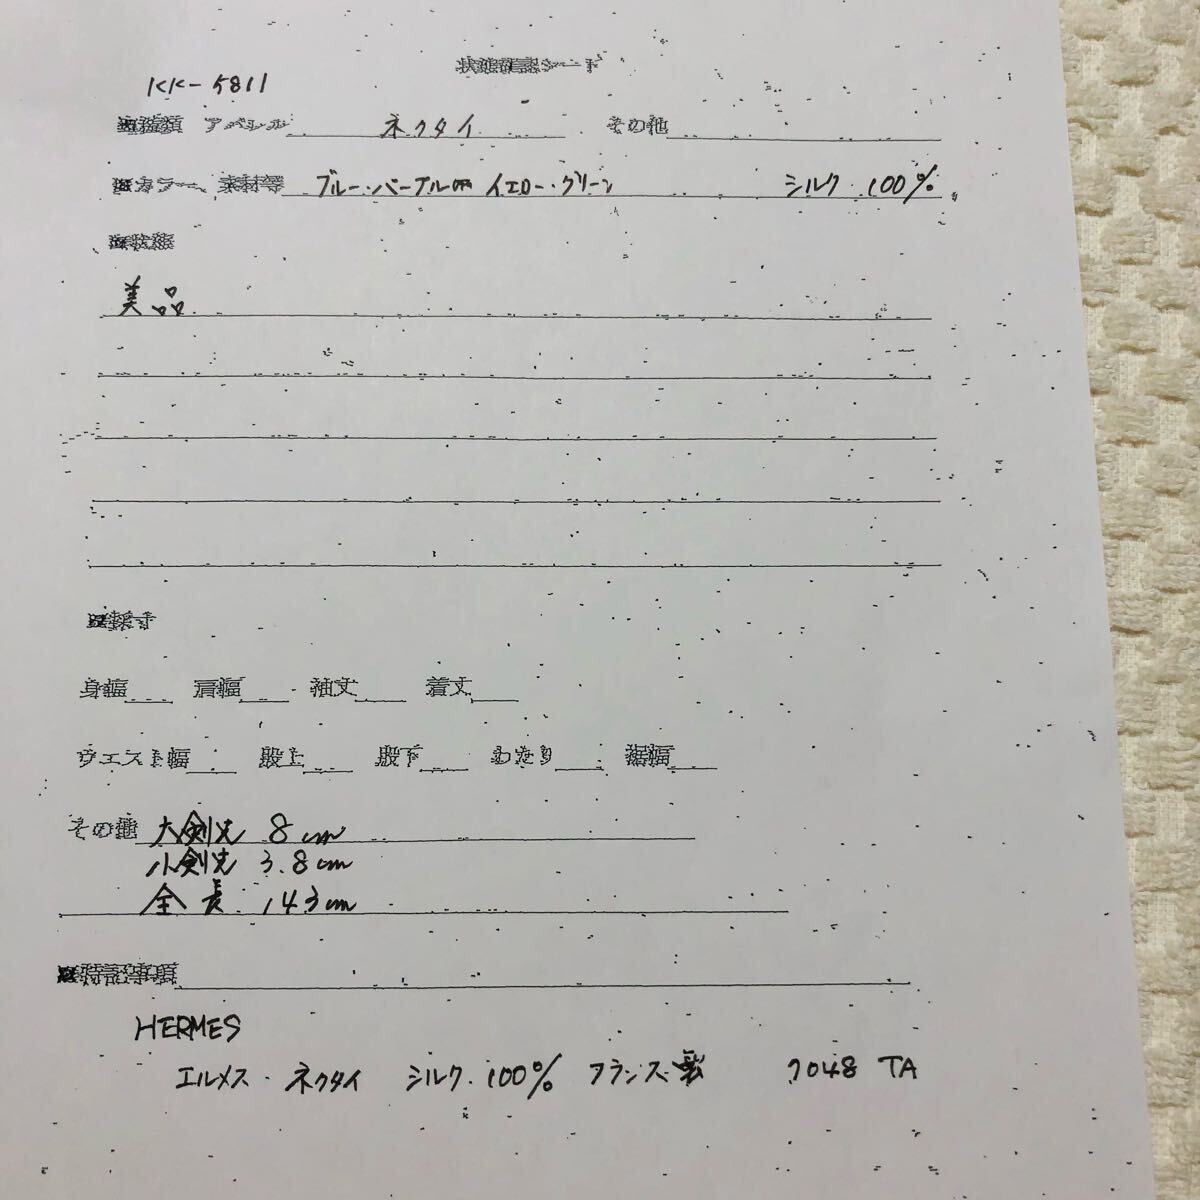 状態確認シート
KK-5811
■種類 アパレル ネクタイ その他
■カラー、素材等 ブルー・パープル イエロー・グリーン シルク 100%
■状態
美品
■採寸
身幅 肩幅 袖丈 着丈
ウエスト幅 股上 股下 わたり 裾幅
その他 大剣先 8cm
小剣先 3.8cm
全長 143cm
■特記事項
HERMES
エルメス・ネクタイ シルク・100% フランス製 7048 TA